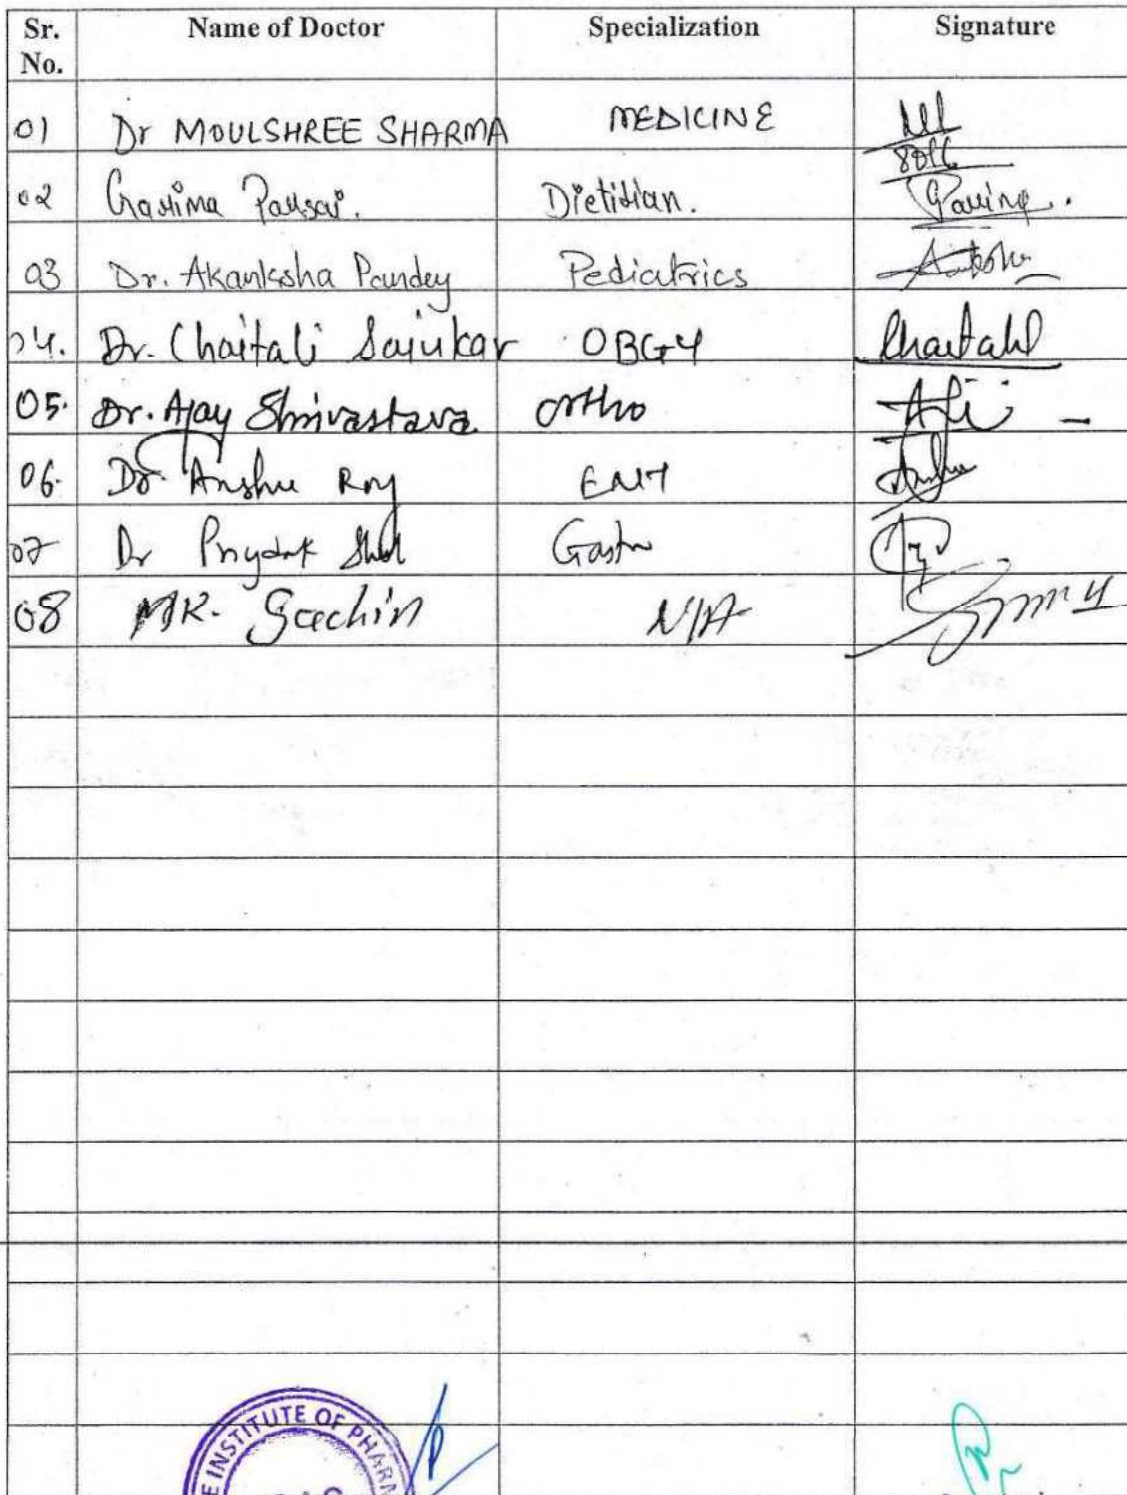 Sr. No. Name of Doctor Specialization Signature
01 Dr MOULSHREE SHARMA MEDICINE
02 Garima Parsai. Dietitian.
03 Dr. Akanksha Pandey Pediatrics
04. Dr. Chaitali Saiukar OBGY Chaitali
05. Dr. Ajay Shrivastava Ortho
06. Dr Anshu Roy ENT
07 Dr Gastro
08 MR. Sachin N/A
E INSTITUTE OF PHARM